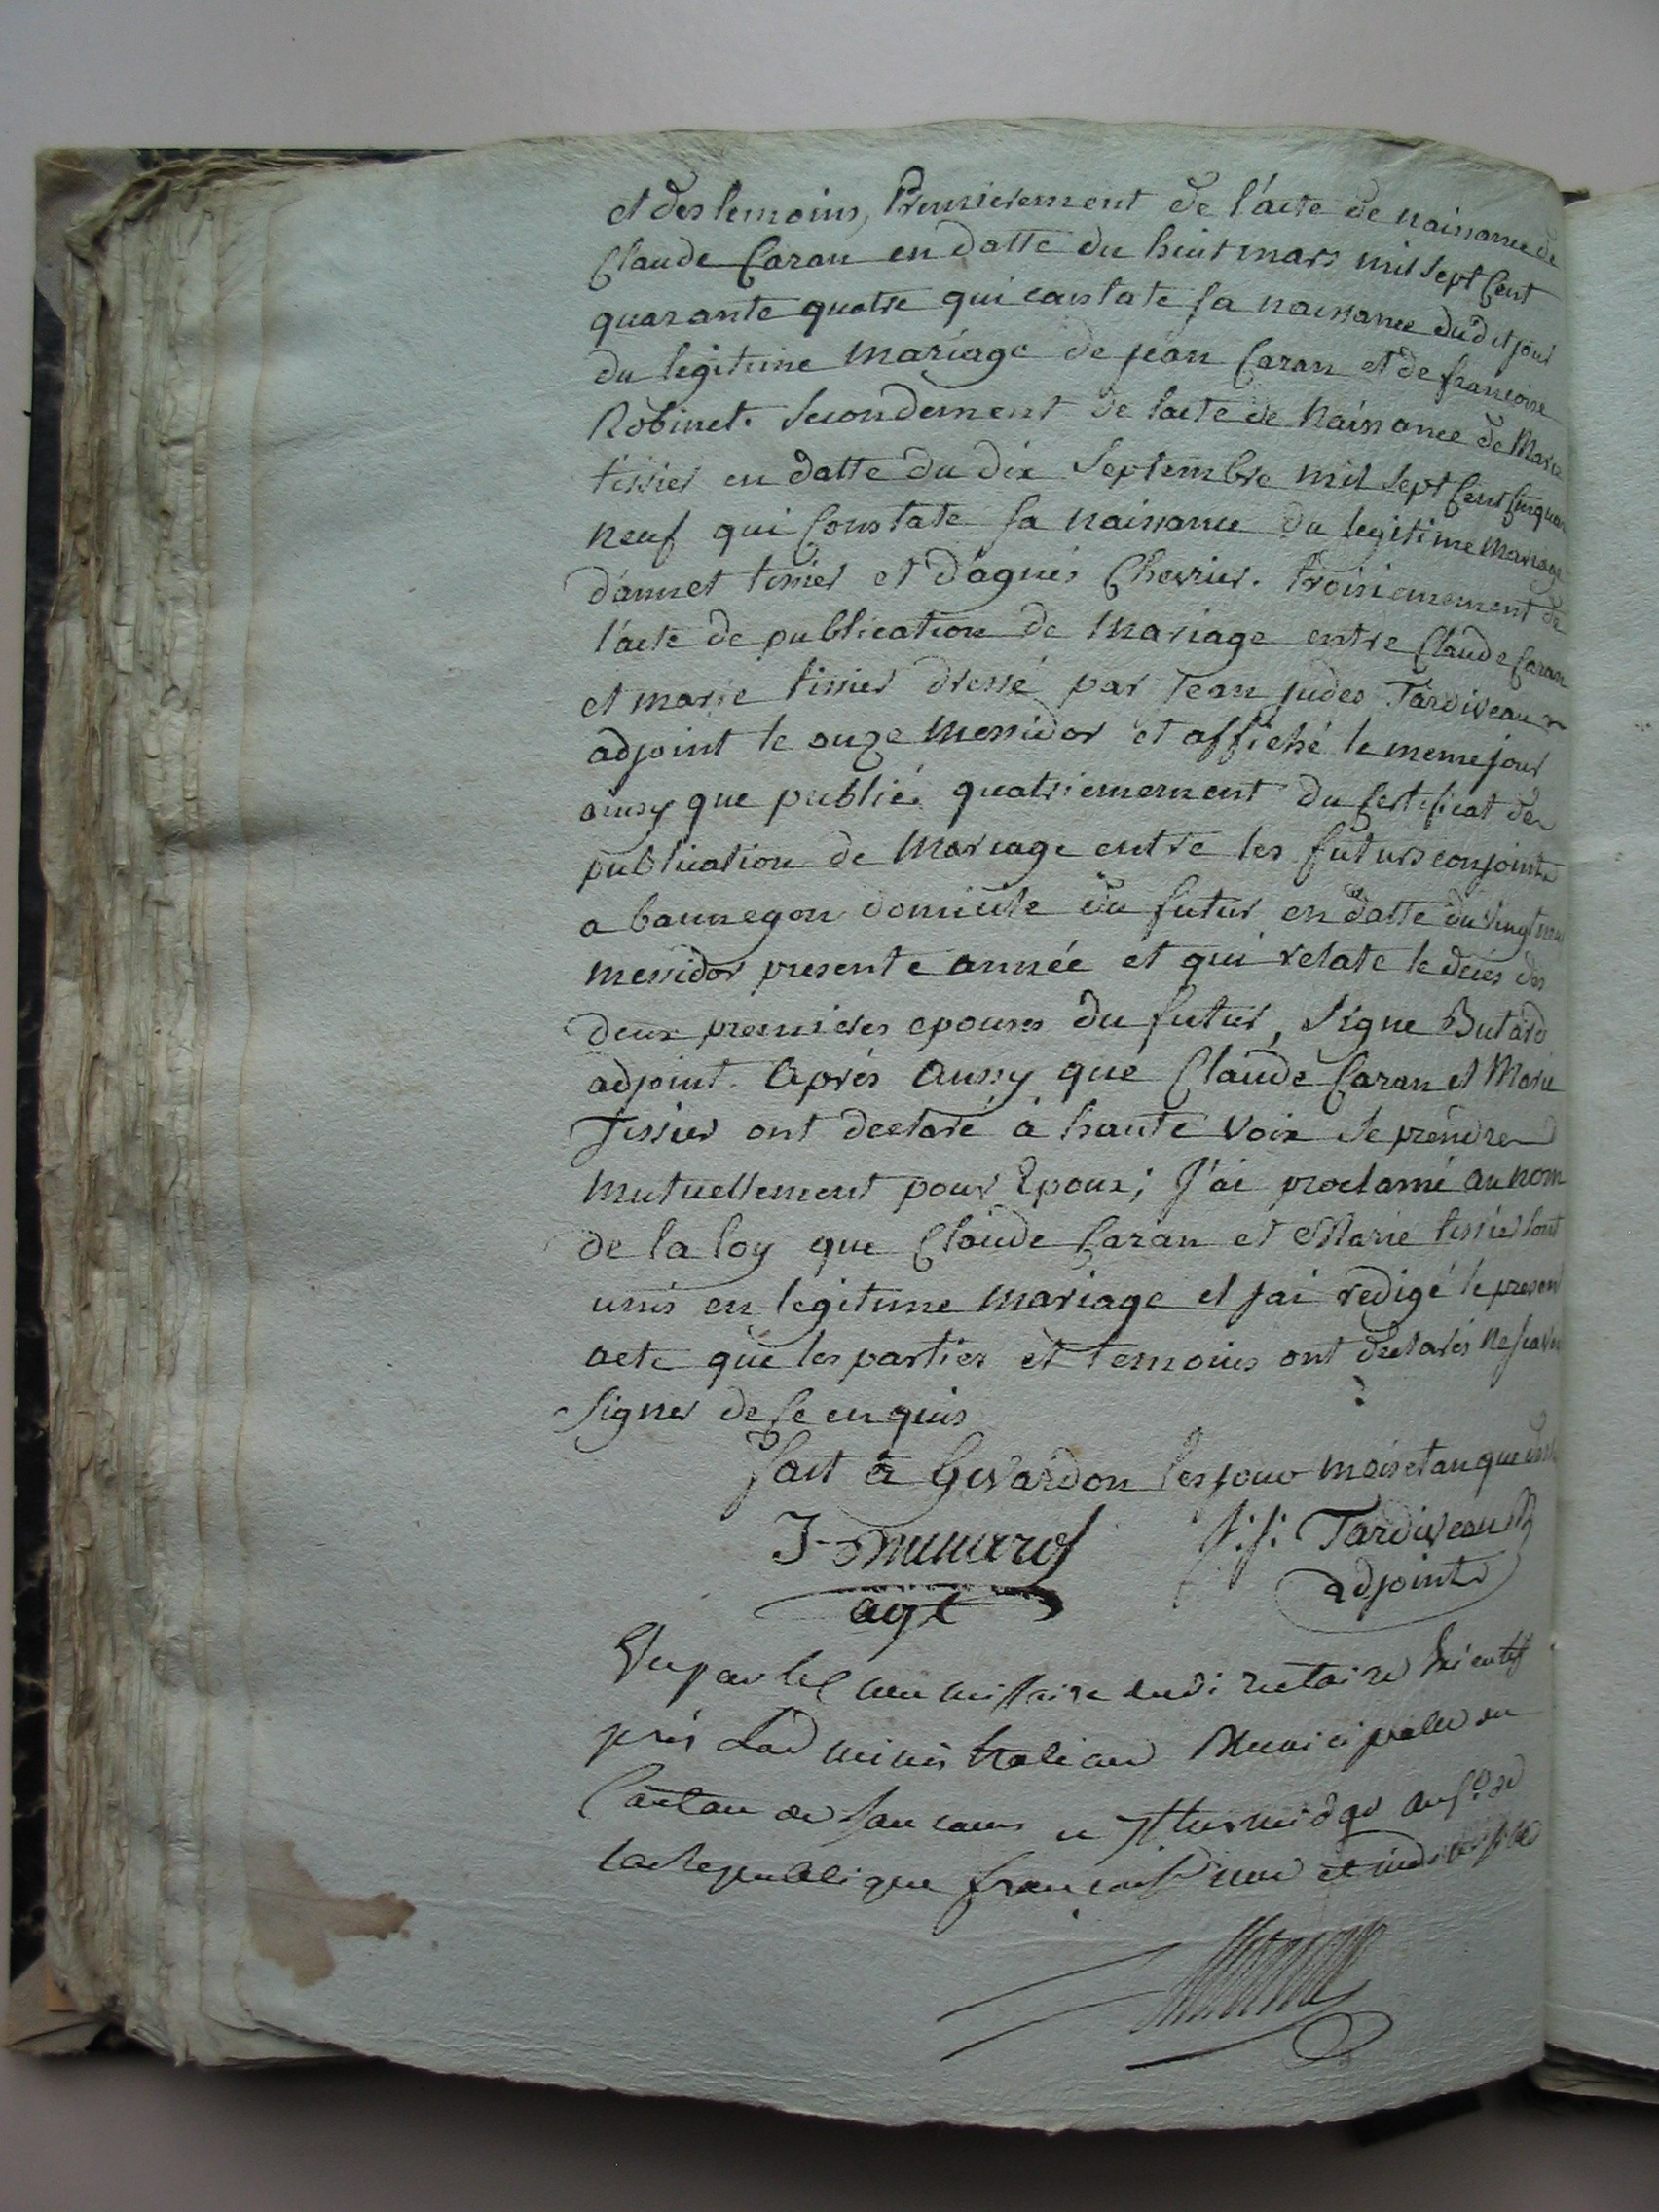 et des temoins, Premierement de l'acte de naissance de
Claude Caran en datte du huit mars mil sept Cent
quarante quatre qui constate sa naissance dudit jour
du legitime mariage de jean Caran et de francoise
Robinet. Secondement de lacte de Naissance de Marie
tissier en datte du dix Septembre mil sept Cent Cinquan
neuf qui Constate sa naissance du legitime mariage
d'annet tissier et d'agnés Chevrier. troisiemement de
l'acte de publication de Mariage entre Claude Caran
et marie tissier dressé par Jean judes Tardiveau
adjoint le onze Messidor et affiché le meme jour
ainsy que publié. quatriemement du Certificat de
publication de Mariage entre les futurs conjoints
a bannegon domicile du futur en datte du vingt neuf
messidor presente année et qui relate le decés des
deux premieres epouses du futur, signe Butard
adjoint. Aprés Aussy que Claude Caran et Marie
Tissier ont declaré à haute voix se prendre
mutuellement pour Epoux; J'ai proclamé au nom
de la loy que Claude Caran et Marie tissier sont
unis en legitime mariage et jai redigé le present
acte que les parties et temoins ont declarés ne scavoir
signer de ce enquis
fait à Givardon les jour mois et an que
J. j. Tardiveau
agt
adjoint
Vu par le commissaire du directoire
prés L'administration Municipalle du
Canton de Sancoins Thermidor de
la Republique francaise une et indivisible